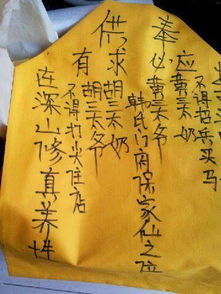 供奉
有求必应
不得招兵买马
黄三太奶
黄三太爷
韩氏门府保家仙之位
胡三太奶
胡三太爷
不得打尖住店
在深山修真养性